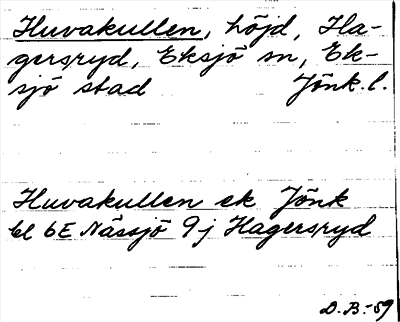 Huvakullen, höjd, Ha-
gersryd, Eksjö sn, Ek-
sjö stad Jönk. l.
Huvakullen ek Jönk
bl 6E Nässjö 9j Hagersryd
D.B.-59